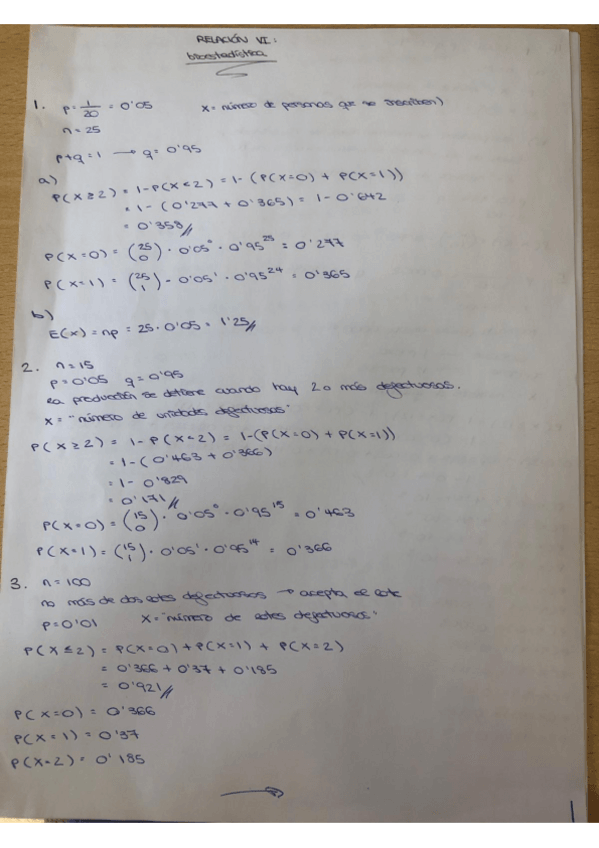 RELACIÓN VI:
bioestadística
1. p = 1/20 = 0'05 X = número de personas que se inscriben)
n = 25
p+q = 1 → q = 0'95
a)
P(X ≥ 2) = 1 - P(X < 2) = 1 - (P(X=0) + P(X=1))
= 1 - (0'277 + 0'365) = 1 - 0'642
= 0'358//
P(X=0) = (25 0) · 0'05⁰ · 0'95²⁵ = 0'277
P(X=1) = (25 1) · 0'05¹ · 0'95²⁴ = 0'365
b)
E(X) = np = 25 · 0'05 = 1'25//
2. n = 15
p = 0'05 q = 0'95
La producción se detiene cuando hay 2 o más defectuosas.
X = "número de unidades defectuosas"
P(X ≥ 2) = 1 - P(X < 2) = 1 - (P(X=0) + P(X=1))
= 1 - (0'463 + 0'366)
= 1 - 0'829
= 0'171//
P(X=0) = (15 0) · 0'05⁰ · 0'95¹⁵ = 0'463
P(X=1) = (15 1) · 0'05¹ · 0'95¹⁴ = 0'366
3. n = 100
no más de dos lotes defectuosos → acepta el lote
p = 0'01 X = "número de lotes defectuosos"
P(X ≤ 2) = P(X=0) + P(X=1) + P(X=2)
= 0'366 + 0'37 + 0'185
= 0'921//
P(X=0) = 0'366
P(X=1) = 0'37
P(X=2) = 0'185
→